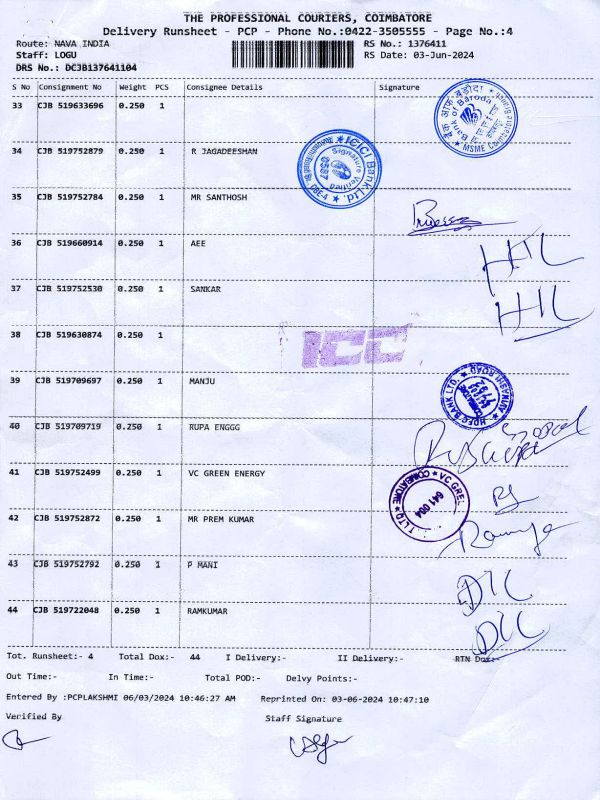 THE PROFESSIONAL COURIERS, COIMBATORE
Delivery Runsheet - PCP - Phone No.:0422-3505555 - Page No.:4
Route: NAVA INDIA RS No.: 1376411
Staff: LOGU RS Date: 03-Jun-2024
DRS No.: DCJB137641104
S No Consignment No Weight PCS Consignee Details Signature
33 CJB 519633696 0.250 1
बैंक ऑफ़ बड़ौदा
Bank of Baroda
MSME Coimbatore
34 CJB 519752879 0.250 1 R JAGADEESHAN
ICICI Bank Ltd.
Signature Verified
35 CJB 519752784 0.250 1 MR SANTHOSH
36 CJB 519660914 0.250 1 AEE
37 CJB 519752530 0.250 1 SANKAR
38 CJB 519630874 0.250 1
ICC
39 CJB 519709697 0.250 1 MANJU
HDFC BANK LTD. AVINASHI ROAD
40 CJB 519709719 0.250 1 RUPA ENGGG
41 CJB 519752499 0.250 1 VC GREEN ENERGY
VC GRE
641 004
COIMBATORE
42 CJB 519752872 0.250 1 MR PREM KUMAR
43 CJB 519752792 0.250 1 P MANI
44 CJB 519722048 0.250 1 RAMKUMAR
Tot. Runsheet:- 4 Total Dox:- 44 I Delivery:- II Delivery:- RTN Dox:-
Out Time:- In Time:- Total POD:- Delvy Points:-
Entered By :PCPLAKSHMI 06/03/2024 10:46:27 AM Reprinted On: 03-06-2024 10:47:10
Verified By Staff Signature